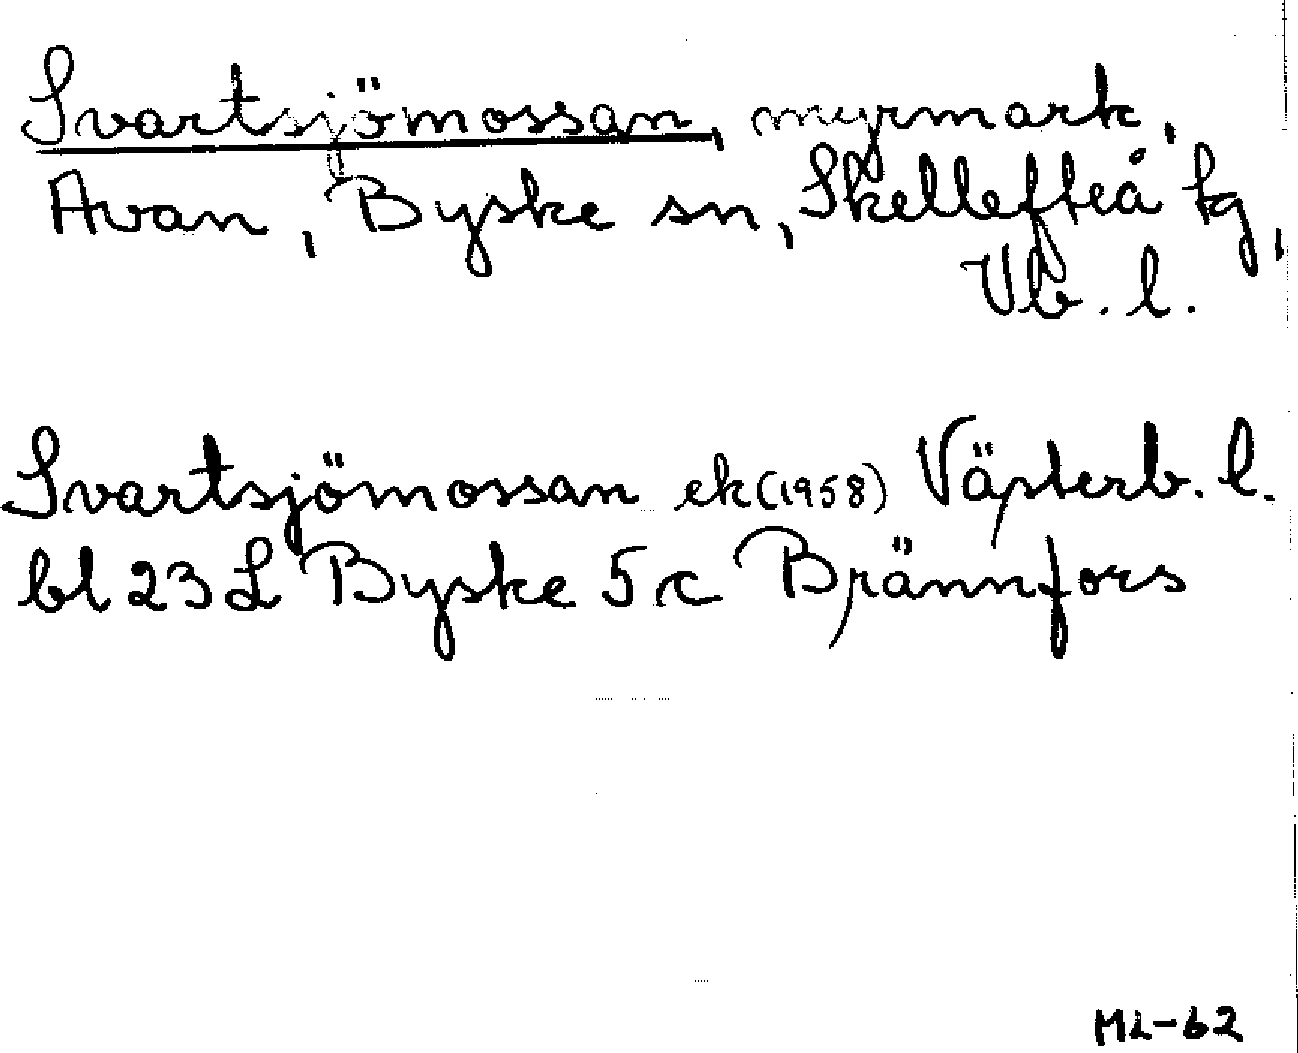 Svartsjömossan, myrmark,
Avan, Byske sn, Skellefteå tg,
Vb. l.
Svartsjömossan ek (1958) Västerb. l.
bl 23 L Byske 5 c Brännfors
ML-62